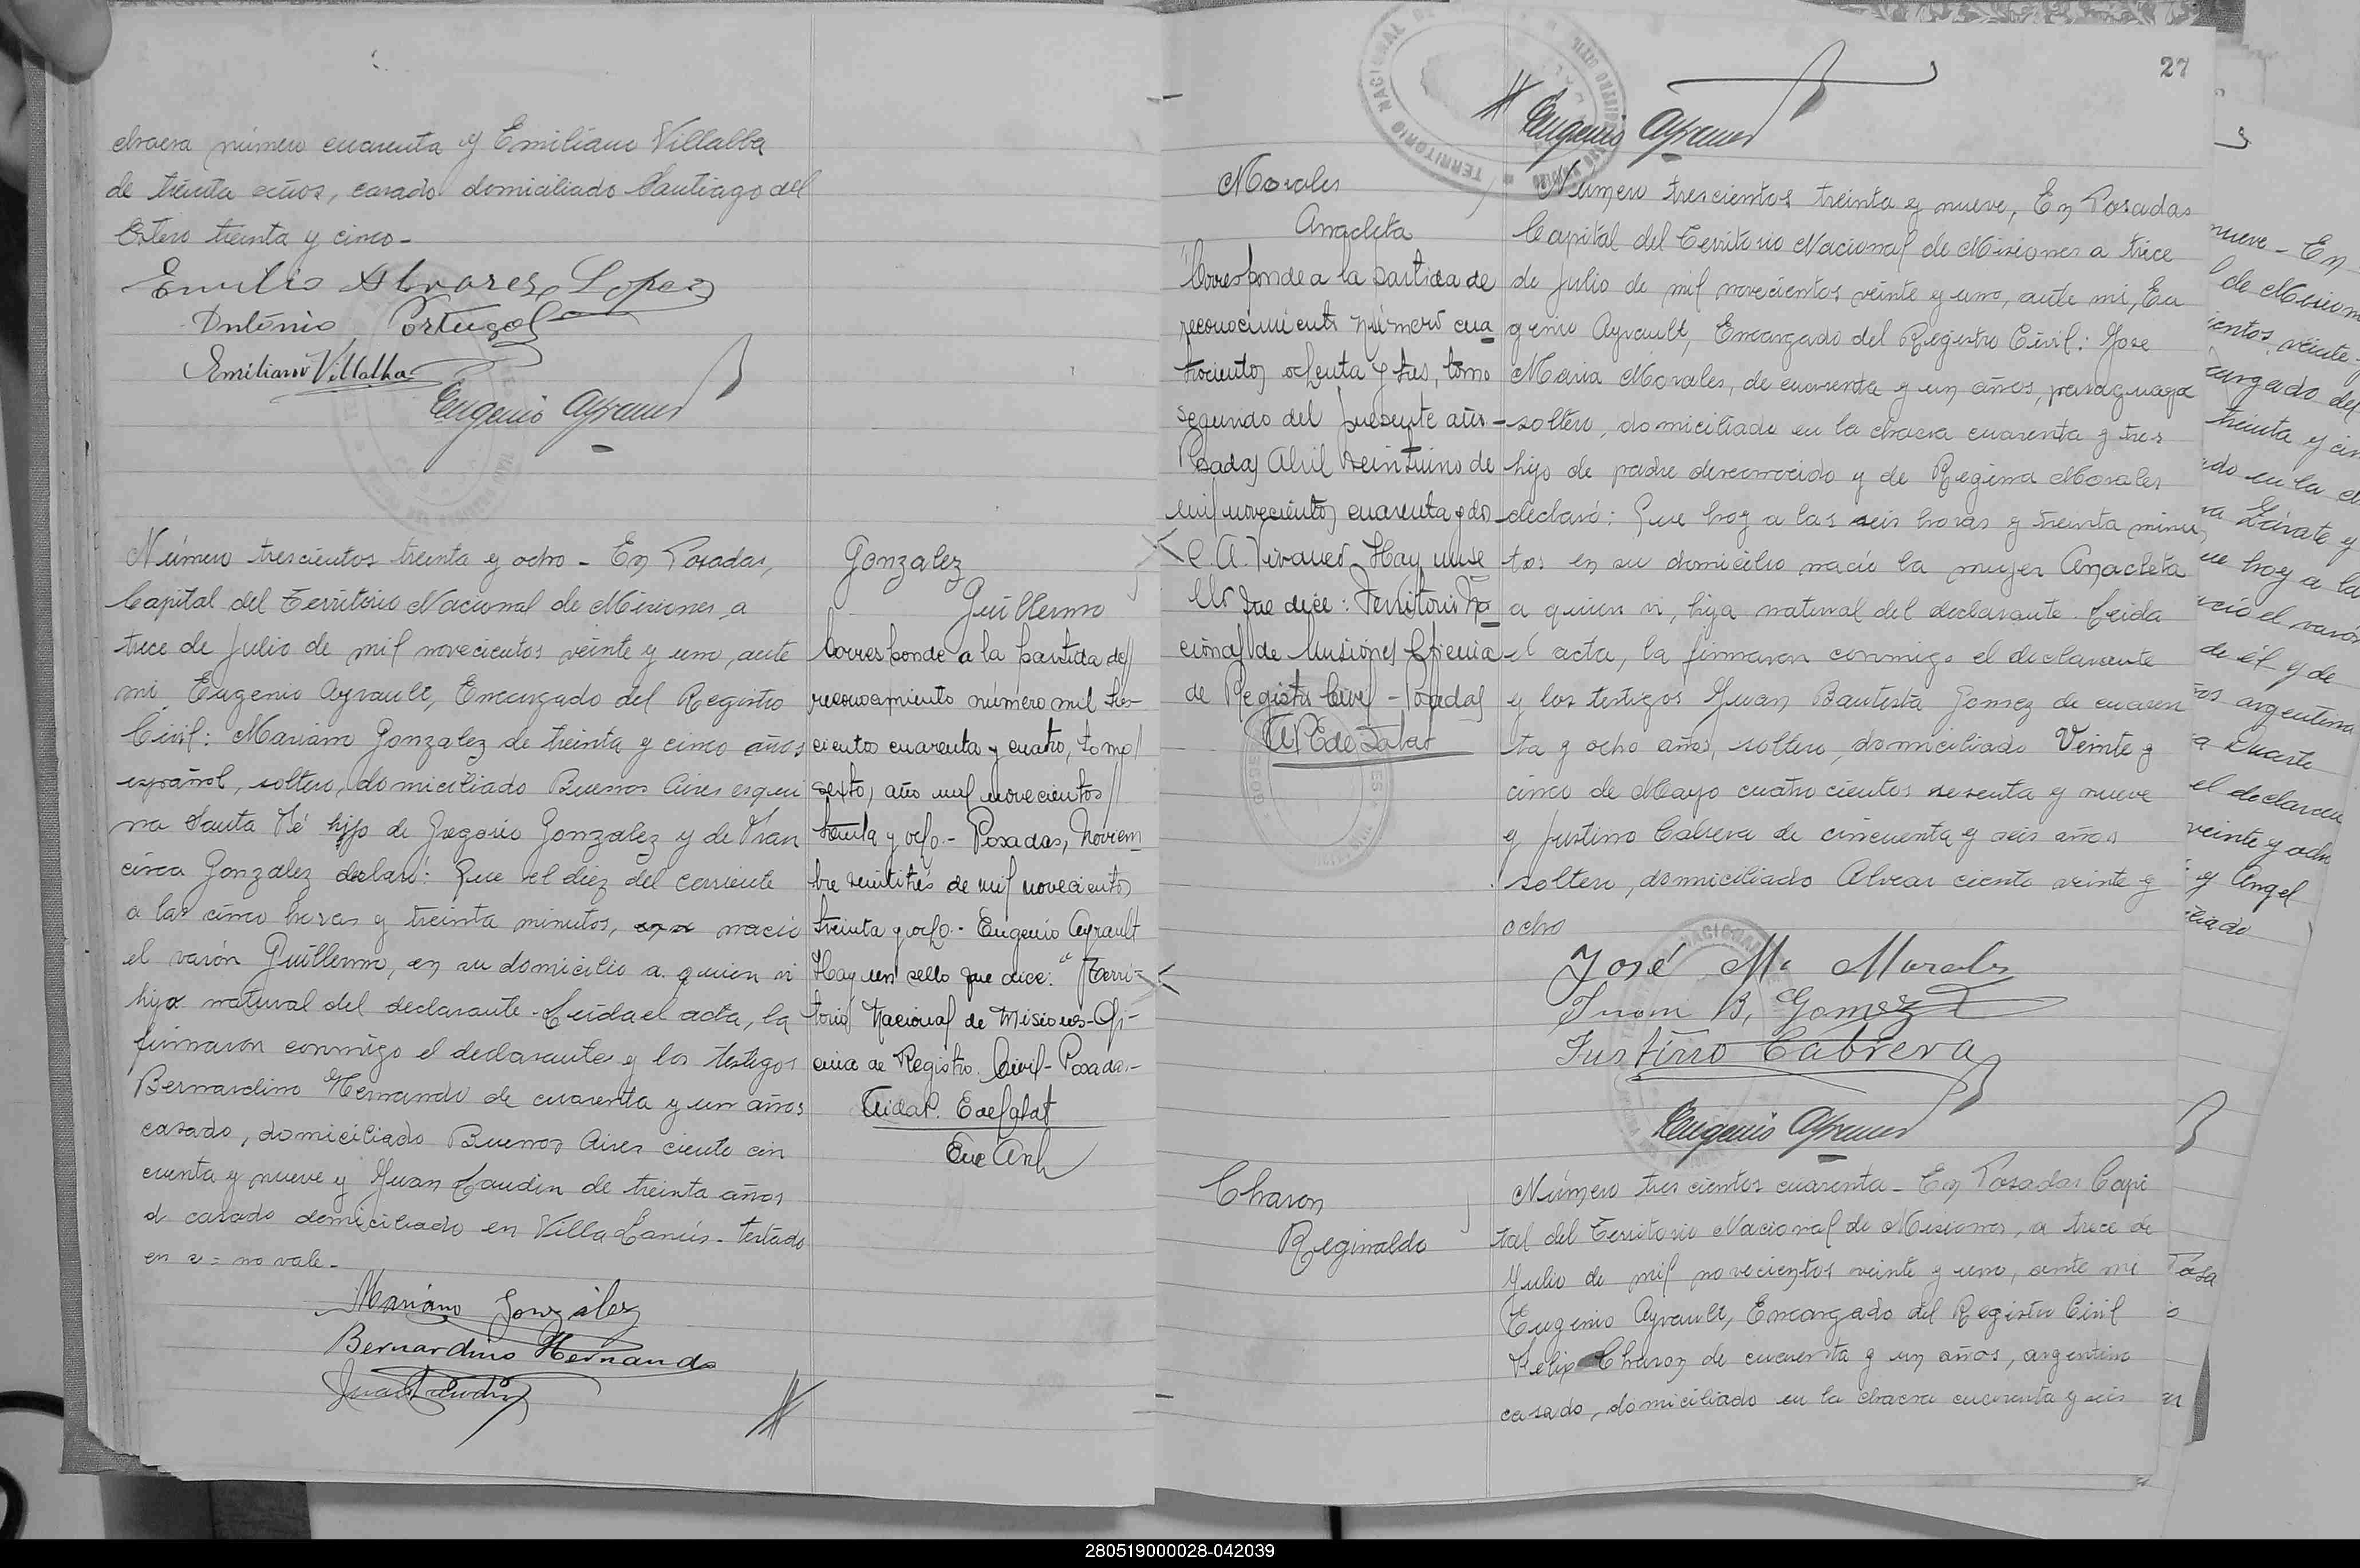 chacra número cuarenta y Emiliano Villalba
de treinta años, casado domiciliado Santiago del
Estero treinta y cinco -
Emilio Alvarez Lopez
António Portugal
Emiliano Villalba
Eugenio Ayrault
Número trescientos treinta y ocho - En Posadas,
Capital del Territorio Nacional de Misiones, a
trece de Julio de mil novecientos veinte y uno, ante
mi Eugenio Ayrault, Encargado del Registro
Civil: Mariano Gonzalez de treinta y cinco años
español, soltero, domiciliado Buenos Aires esqui
na Santa Fé hijo de Gregorio Gonzalez y de Fran
cisca Gonzalez declaró: Que el diez del corriente
a las cinco horas y treinta minutos, nació
el varón Guillermo, en su domicilio a quien vi
hijo natural del declarante - Leida el acta, la
firmaron conmigo el declarante y los testigos
Bernardino Hernando de cuarenta y un años
casado, domiciliado Buenos Aires ciento cin
cuenta y nueve y Juan Laudin de treinta años
casado domiciliado en Villa Lanús - testado
en a = no vale -
Mariano González
Bernardino Hernando
Juan Laudin
Gonzalez
Guillermo
Corresponde a la partida de
reconocimiento número mil tres-
cientos cuarenta y cuatro, tomo
sexto, año mil novecientos
treinta y ocho - Posadas, Noviem
bre veintitrés de mil novecientos
treinta y ocho - Eugenio Ayrault
Hay un sello que dice: "Terri-
torio Nacional de Misiones - Ofi-
cina de Registro Civil - Posadas -
27
Eugenio Ayrault
Morales
Anacleta
Corresponde a la partida de
reconocimiento número cua
trocientos ochenta y tres, tomo
segundo del presente año -
Posadas Abril veintiuno de
mil novecientos cuarenta y dos
C. A. Vivanco. Hay un se
llo que dice: Territorio Na
cional de Misiones Oficina
de Registro Civil - Posadas
Número trescientos treinta y nueve, En Posadas
Capital del Territorio Nacional de Misiones a trece
de Julio de mil novecientos veinte y uno, ante mi, Eu
genio Ayrault, Encargado del Registro Civil: Jose
Maria Morales, de cuarenta y un años, paraguayo
soltero, domiciliado en la chacra cuarenta y tres
hijo de padre desconocido y de Regina Morales
declaró: Que hoy a las seis horas y treinta minu
tos en su domicilio nació la mujer Anacleta
a quien vi, hija natural del declarante. Leida
el acta, la firmaron conmigo el declarante
y los testigos Juan Bautista Gomez de cuaren
ta y ocho años, soltero, domiciliado Veinte y
cinco de Mayo cuatrocientos sesenta y nueve
y Justino Cabrera de cincuenta y seis años
soltero, domiciliado Alvear ciento veinte y
ocho
José Ma Morales
Juan B. Gomez
Justino Cabrera
Eugenio Ayrault
Charon
Reginaldo
Número trescientos cuarenta - En Posadas Capi
tal del Territorio Nacional de Misiones, a trece de
Julio de mil novecientos veinte y uno, ante mi
Eugenio Ayrault, Encargado del Registro Civil
Felix Charon de cuarenta y un años, argentino
casado, domiciliado en la chacra cuarenta y seis
nueve - En
de Mision
ientos veinte
cargado del
treinta y cin
ado en la ch
va Zárate y
ue hoy a la
nació el varón
de él y de
os argentina
a Duarte
el declaran
veinte y ocho
y Angel
iliado
280519000028-042039